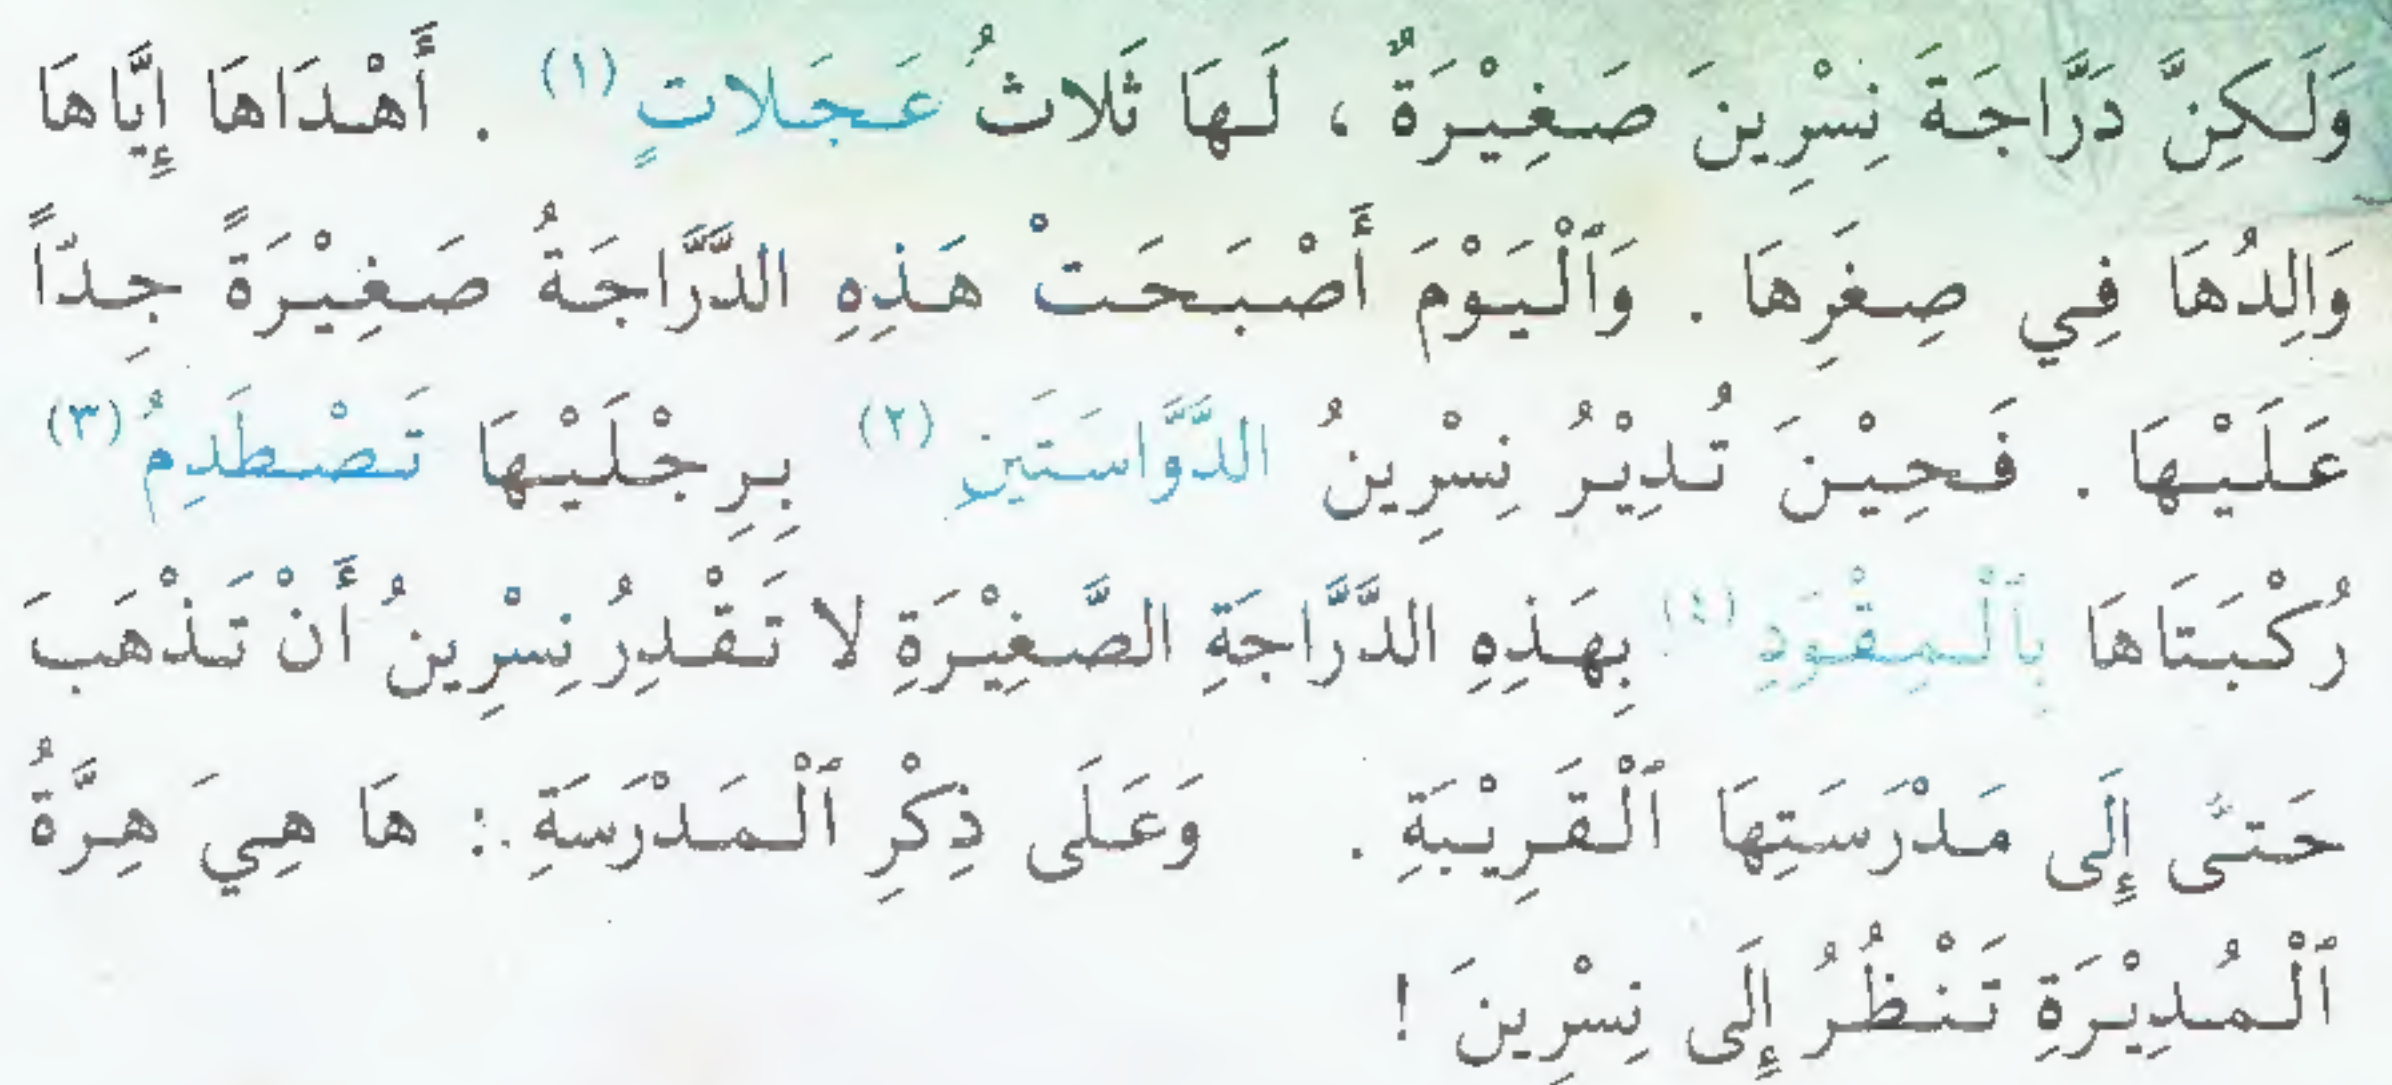 وَلَكِنَّ دَرَّاجَةَ نِسْرِينَ صَغِيْرَةٌ ، لَهَا ثَلاثُ عَجَلاتٍ (١) . أَهْدَاهَا إِيَّاهَا
وَالِدُهَا فِي صِغَرِهَا . وَٱلْيَوْمَ أَصْبَحَتْ هَذِهِ الدَّرَّاجَةُ صَغِيْرَةً جِدّاً
عَلَيْهَا . فَحِيْنَ تُدِيْرُ نِسْرِينُ الدَّوَّاسَتَينِ (٢) بِرِجْلَيْهَا تَصْطَدِمُ (٣)
رُكْبَتَاهَا بِٱلْمِقْوَدِ (٤) بِهَذِهِ الدَّرَّاجَةِ الصَّغِيْرَةِ لا تَقْدِرُ نِسْرِينُ أَنْ تَذْهَبَ
حَتَّى إِلَى مَدْرَسَتِهَا ٱلْقَرِيْبَةِ . وَعَلَى ذِكْرِ ٱلْمَدْرَسَةِ .: هَا هِيَ هِرَّةُ
ٱلْمُدِيْرَةِ تَنْظُرُ إِلَى نِسْرِينَ !